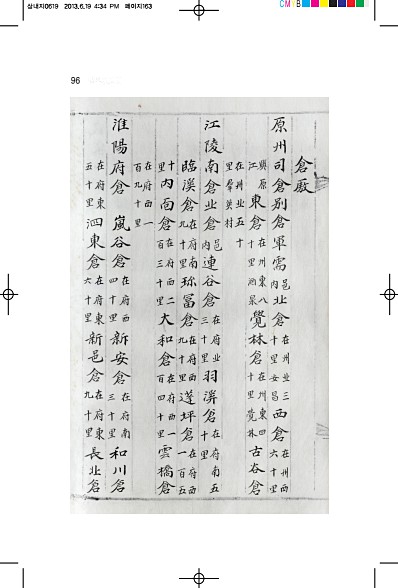 삼내지0619 2013.6.19 4:34 PM 페이지163
96
倉廒
原州司倉別倉軍需邑內北倉在州北三十里安昌西倉在州西六十里
興原江東倉在州東八十里酒泉覺林倉在州東四十里覺林古谷倉
在州北五十里
江陵南倉北倉邑內連谷倉在府北三十里羽溪倉在府南五十里
臨溪倉在府南九十里珍富倉在府西九十里蓬坪倉在府西一百五
十里內面倉在府西二百三十里大和倉在府西一百四十里雲橋倉
在府西一百九十里
淮陽府倉嵐谷倉在府西四十里新安倉在府南三十里和川倉
在府東五十里泗東倉在府東六十里新邑倉在府東九十里長北倉